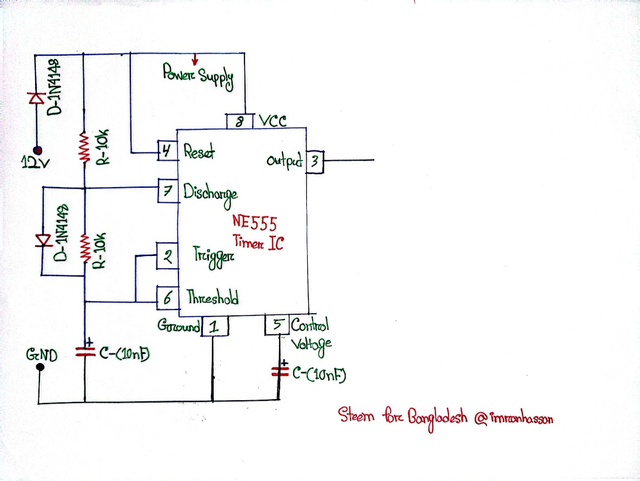 D-1N4148
12V
R-10k
Power Supply
8 VCC
4 Reset
Output 3
7 Discharge
NE555
Timer IC
D-1N4148
R-10k
2 Trigger
6 Threshold
Ground 1
5 Control
Voltage
GND
+
C-(10nF)
+
C-(10nF)
Steem for Bangladesh @imranhassan